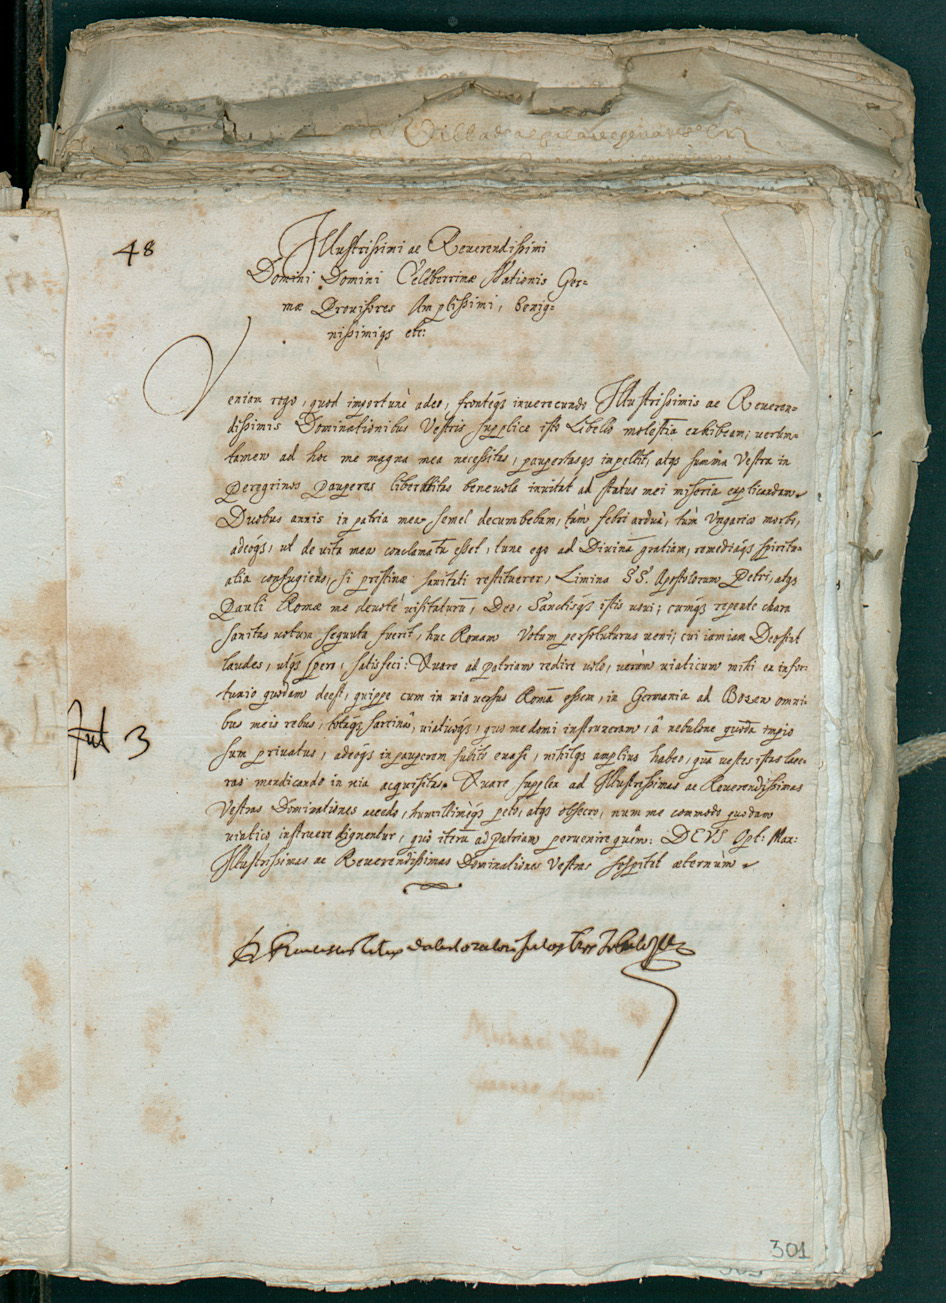 48
Illustrissimi ac Reverendissimi
Domini Domini Celeberrimæ Nationis Ger-
mæ Provisores Amplissimi, benig-
nissimiqs etc:
Veniam rogo, quod importunè adeo, fronteqs inverecunda Illustrissimis ac Reveren-
dissimis Dominationibus Vestris supplice isto Libello molestia exhibeam; verun-
tamen ad hoc me magna mea necessitas, paupertasqs inpellit, atqs summa Vestra in
Peregrinos Pauperes liberalitas benevola invitat ad status mei miseria explicandam.
Duobus annis in patria mea semel decumbebam, tùm febri arduâ, tùm Ungarico morbo,
adeoqs, ut de vita mea conclamatū esset, tunc ego ad Divinā gratiam, remediaqs spiritu-
alia confugiens, si pristinæ sanitati restituerer, Limina SS. Apostolorum Petri, atqs
Pauli Romæ me devotè visitaturū, Deo, Sanctisqs istis vovi; cumqs repente chara
sanitas votum sequuta fuerit, huc Romam Votum persoluturus veni; cui iamiam Deo sint
laudes, utqs spero, satisfeci: Quare ad patriam redire volo, verùm viaticum mihi ex infor-
tunio quodam deest, quippe cum in via versus Romā essem, in Germania ad Bozen omni-
bus meis rebus, totaqs sarcinâ, viaticoqs, quo me domi instruxeram, â nebulone quodā impio
sum privatus, adeoqs in pauperem subitò evasi, nihilqs amplius habeo, quā vestes istas lace-
ras mendicando in via acquisitas. Quare supplex ad Illustrissimas ac Reverendissimas
Vestras Dominationes accedo, humillimèqs peto, atqs obsecro, num me commodo quodam
viatico instruere dignentur, quò iterū ad patriam pervenire queā: DEUS Opt: Max:
Illustrissimas ac Reverendissimas Dominationes Vestras sospitet æternùm.
Jul 3
Franciscus
301